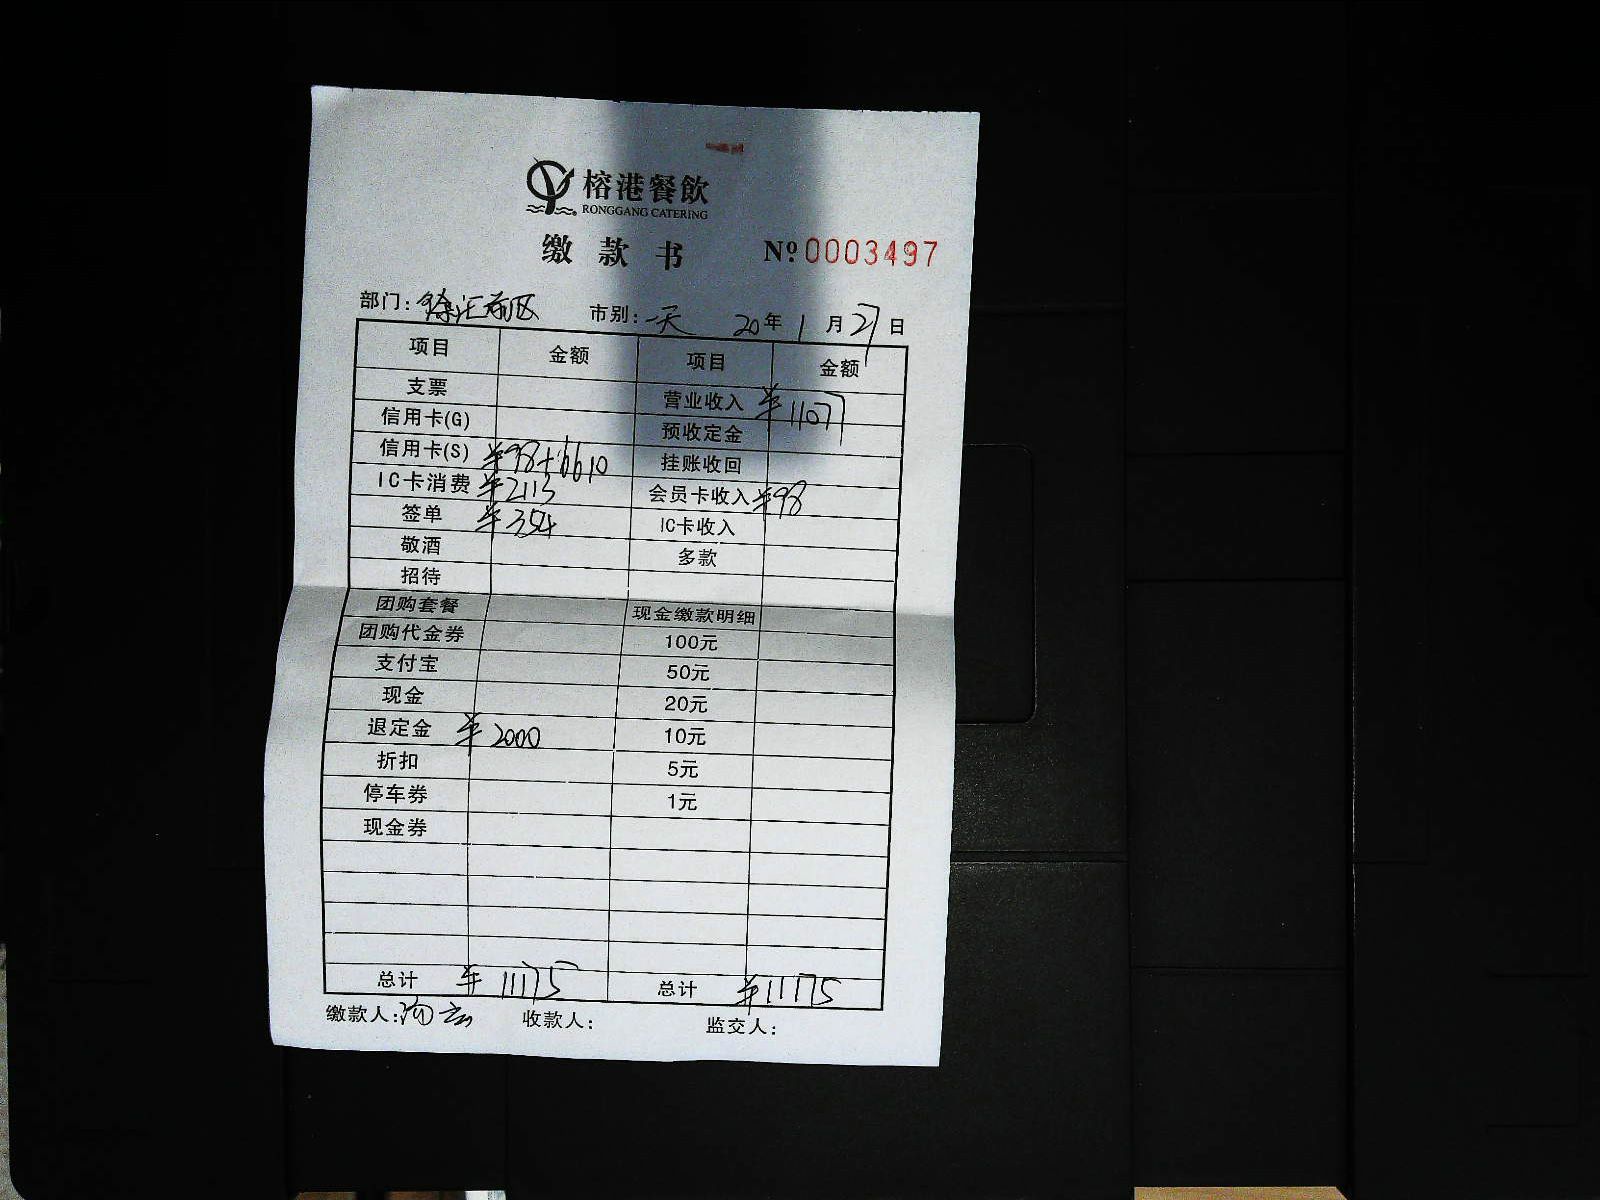 榕港餐飲
RONGGANG CATERING
缴款书 №0003497
部门: 徐汇 区 市别: 一天 20年1月27日
项目 金额 项目 金额
支票 营业收入 ¥11077
信用卡(G) 预收定金
信用卡(S) ¥98+6610 挂账收回
IC卡消费 ¥2113 会员卡收入 ¥98
签单 ¥354 IC卡收入
敬酒 多款
招待
团购套餐 现金缴款明细
团购代金券 100元
支付宝 50元
现金 20元
退定金 ¥2000 10元
折扣 5元
停车券 1元
现金券
总计 ¥11175 总计 ¥11175
缴款人: 收款人: 监交人: